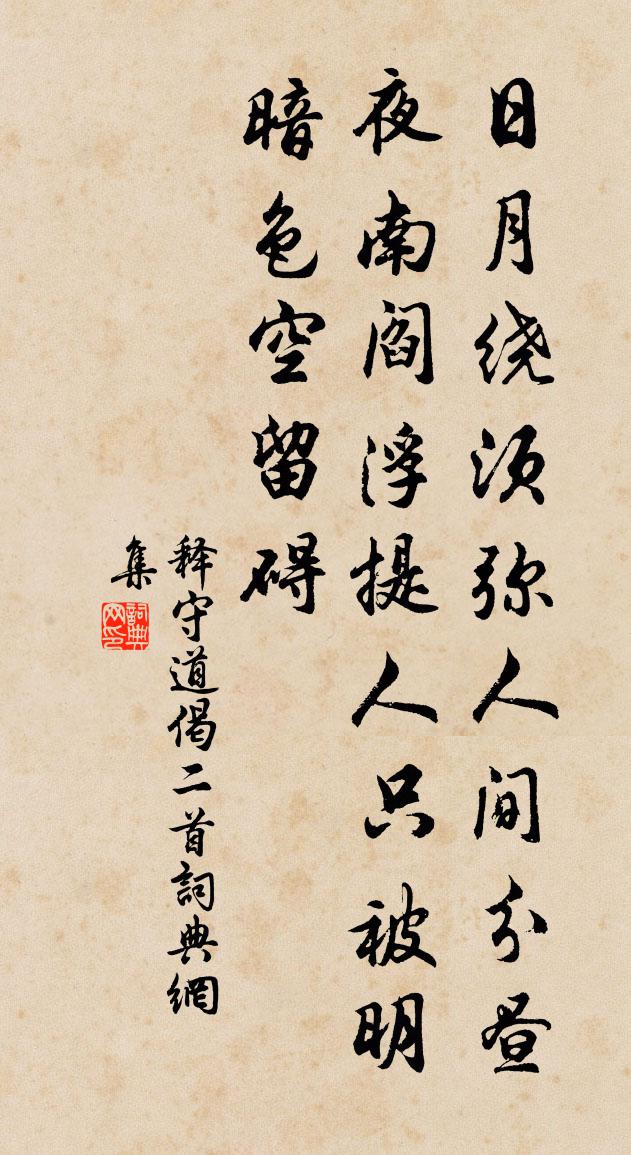 日月绕须弥人间分昼
夜南阎浮提人只被明
暗色空留碍
释守道偈二首詞典網
集
詞典
网印